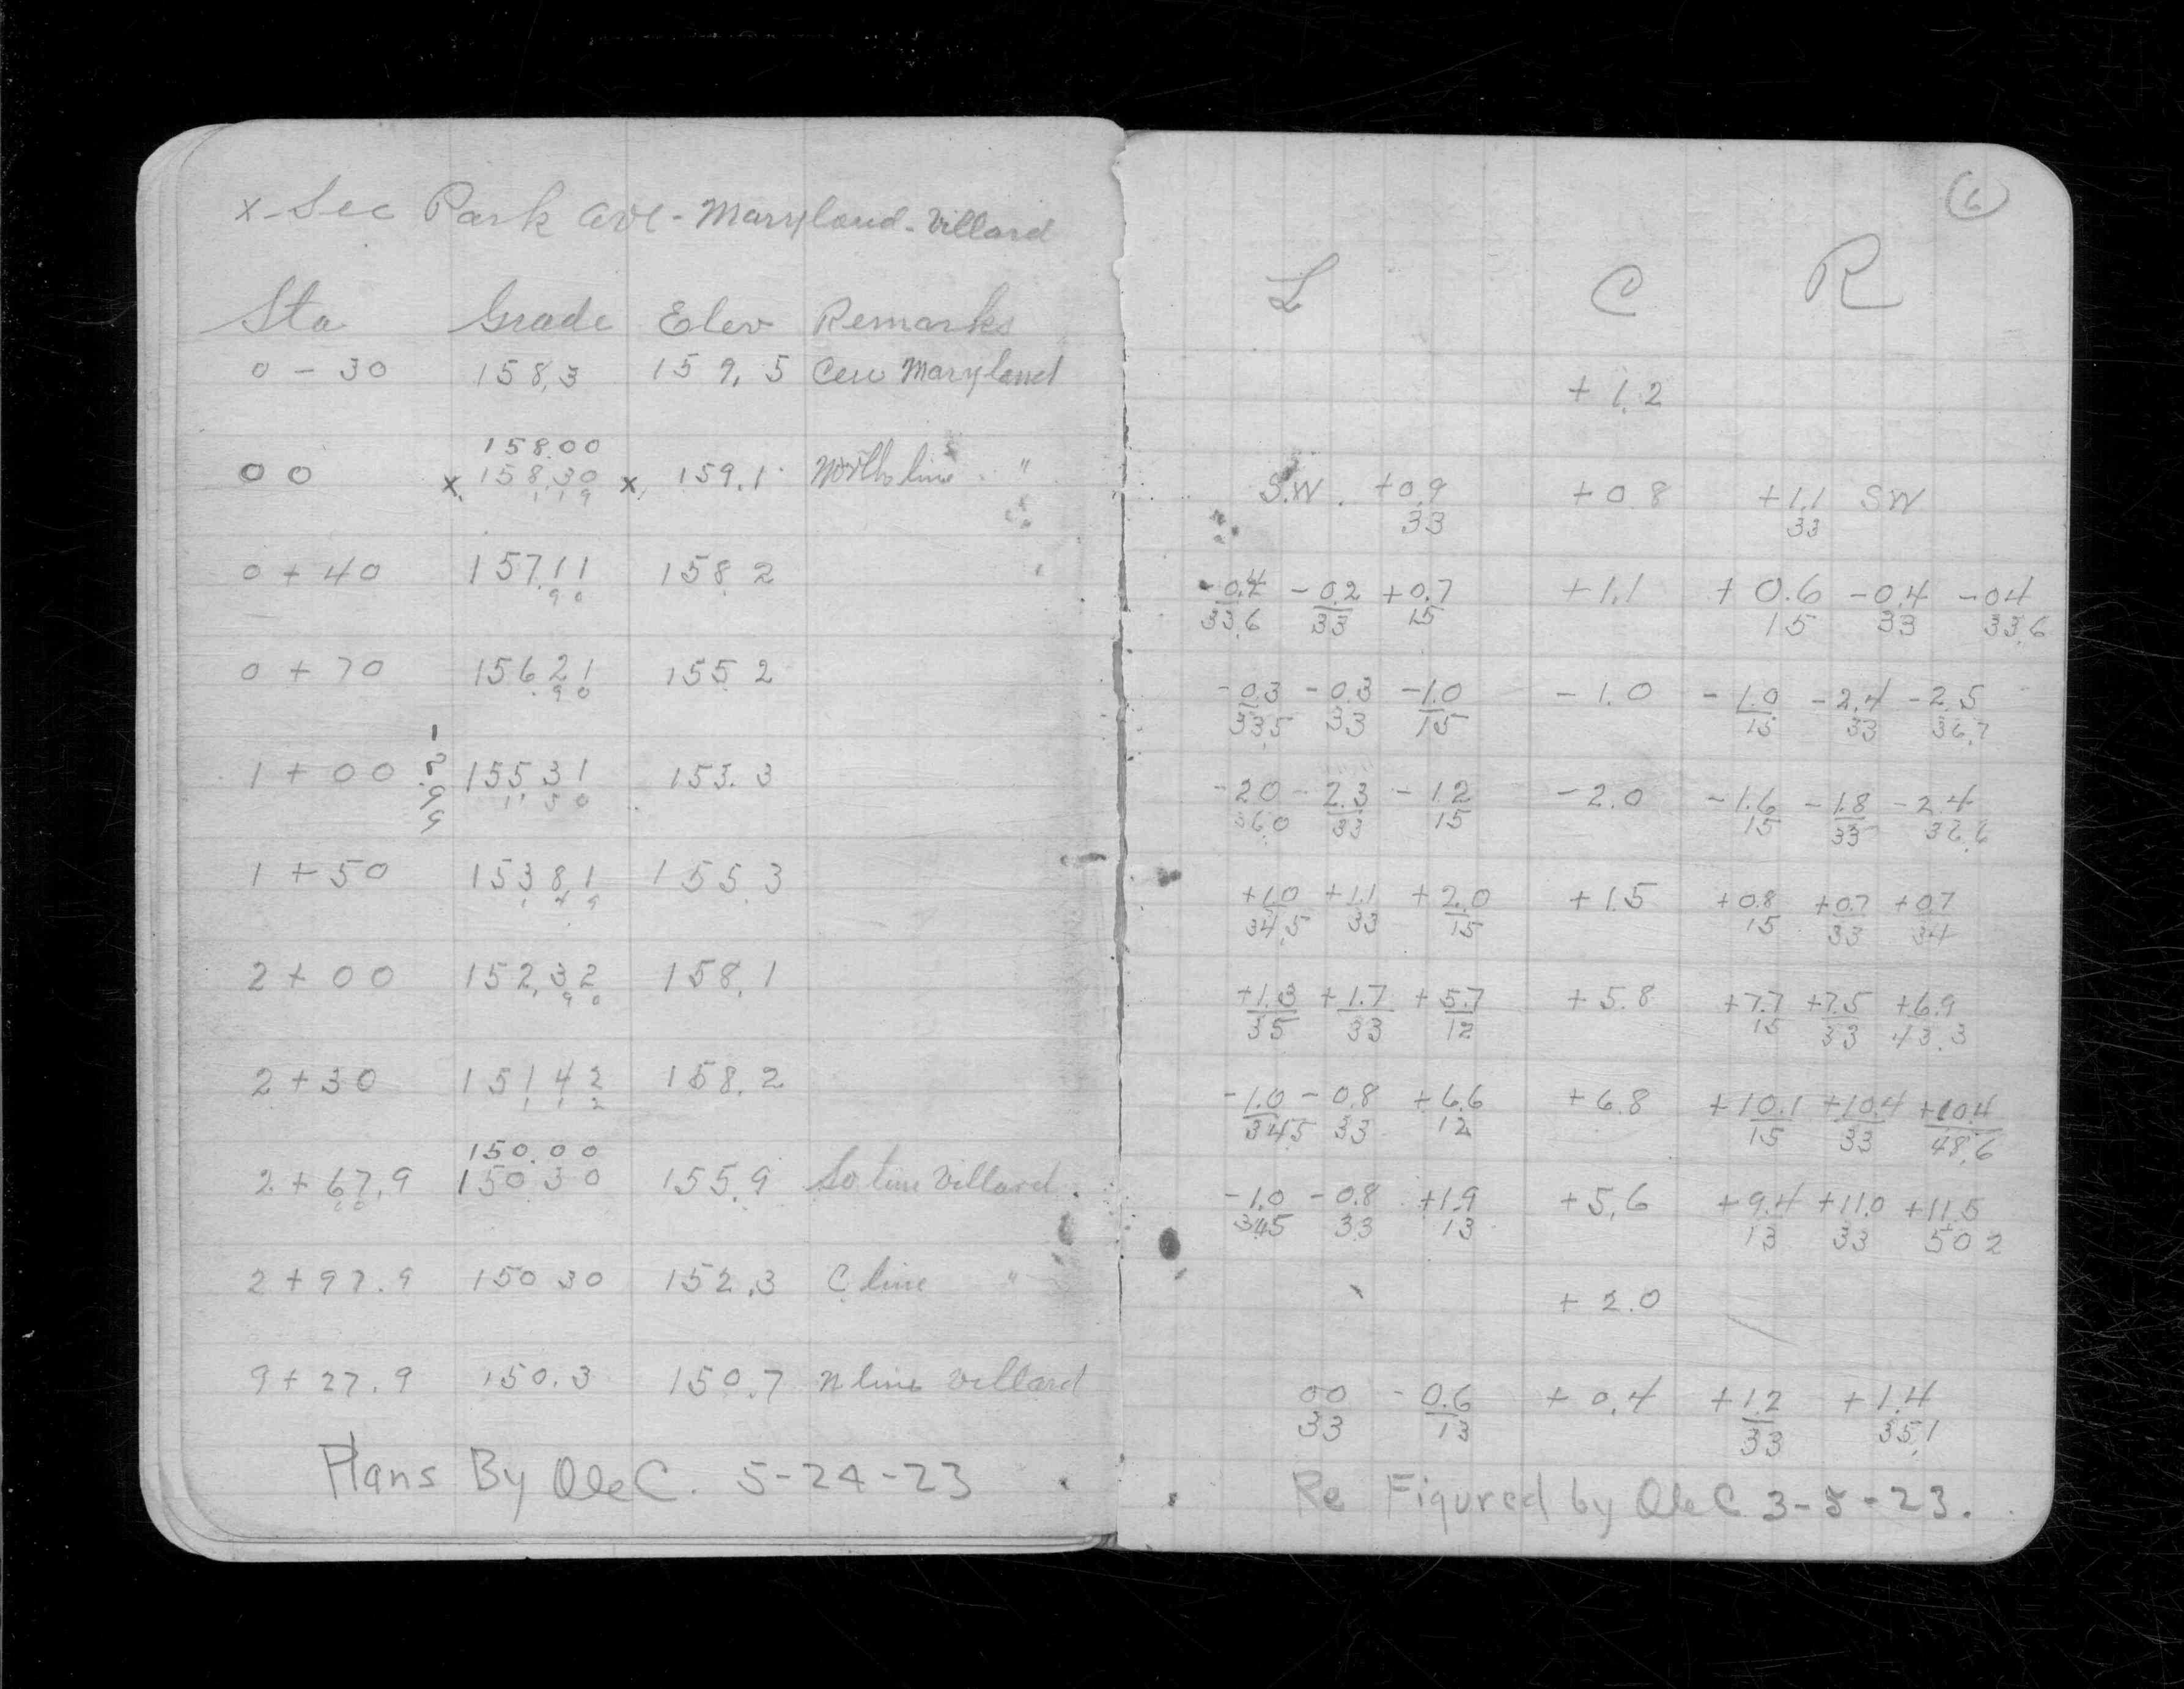 x-Sec Park Ave - Maryland - Villard
Sta Grade Elev Remarks
0 - 30 158.3 159.5 Cen Maryland
158.00
00 x 158.30 x 159.1 North line "
1 1 9
0 + 40 157.11 158.2
9 0
0 + 70 156.21 155.2
9 0
1 + 00 155.31 153.3
1 5 0
1 + 50 153.81 155.3
1 4 9
2 + 00 152.32 158.1
9 0
2 + 30 151.42 158.2
1 1 2
150.00
2 + 67.9 150.30 155.9 So line Villard
2 + 97.9 150 30 152.3 C line "
9 + 27.9 150.3 150.7 N line Villard
Plans By Ole C. 5-24-23
6
L C R
+ 1.2
S.W. +0.9 +0.8 +1.1 SW
33 33
-0.4 -0.2 +0.7 +1.1 +0.6 -0.4 -0.4
33.6 33 15 15 33 33.6
-0.3 -0.3 -1.0 -1.0 -1.0 -2.4 -2.5
33.5 33 15 15 33 36.7
-2.0 -2.3 -1.2 -2.0 -1.6 -1.8 -2.4
36.0 33 15 15 33 36.6
+1.0 +1.1 +2.0 +1.5 +0.8 +0.7 +0.7
34.5 33 15 15 33 34
+1.3 +1.7 +5.7 +5.8 +7.7 +7.5 +6.9
35 33 12 15 33 43.3
-1.0 -0.8 +6.6 +6.8 +10.1 +10.4 +10.4
34.5 33 12 15 33 48.6
-1.0 -0.8 +1.9 +5.6 +9.4 +11.0 +11.5
34.5 33 13 13 33 50 2
+ 2.0
00 - 0.6 + 0.4 +1.2 +1.4
33 13 33 35.1
Re Figured by Ole C 3-8-23.